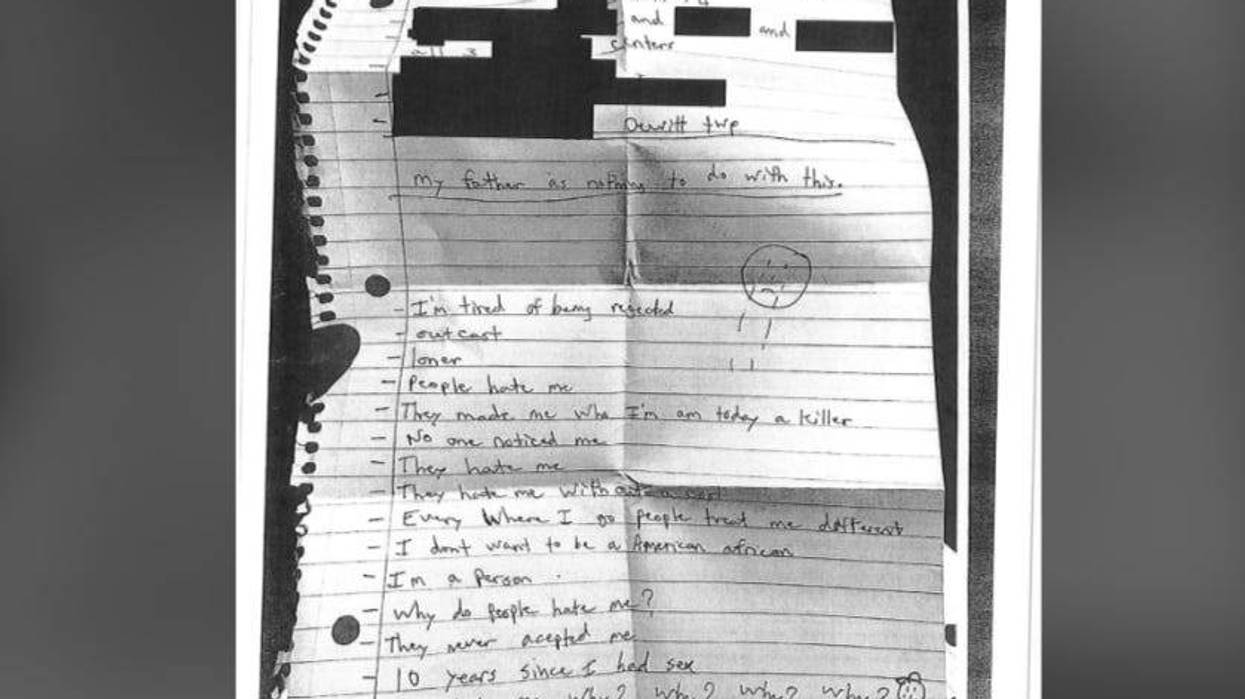 and and
all 3 centers
Dewitt twp
My father as nothing to do with this.
- I'm tired of being rejected
- outcast
- loner
- People hate me
- They made me who I'm am today a killer
- No one noticed me
- They hate me
- They hate me without a
- Every Where I go people treat me different
- I dont want to be a American african
- I'm a Person
- Why do people hate me?
- They never acepted me
- 10 years since I had sex
why? why? why? why?